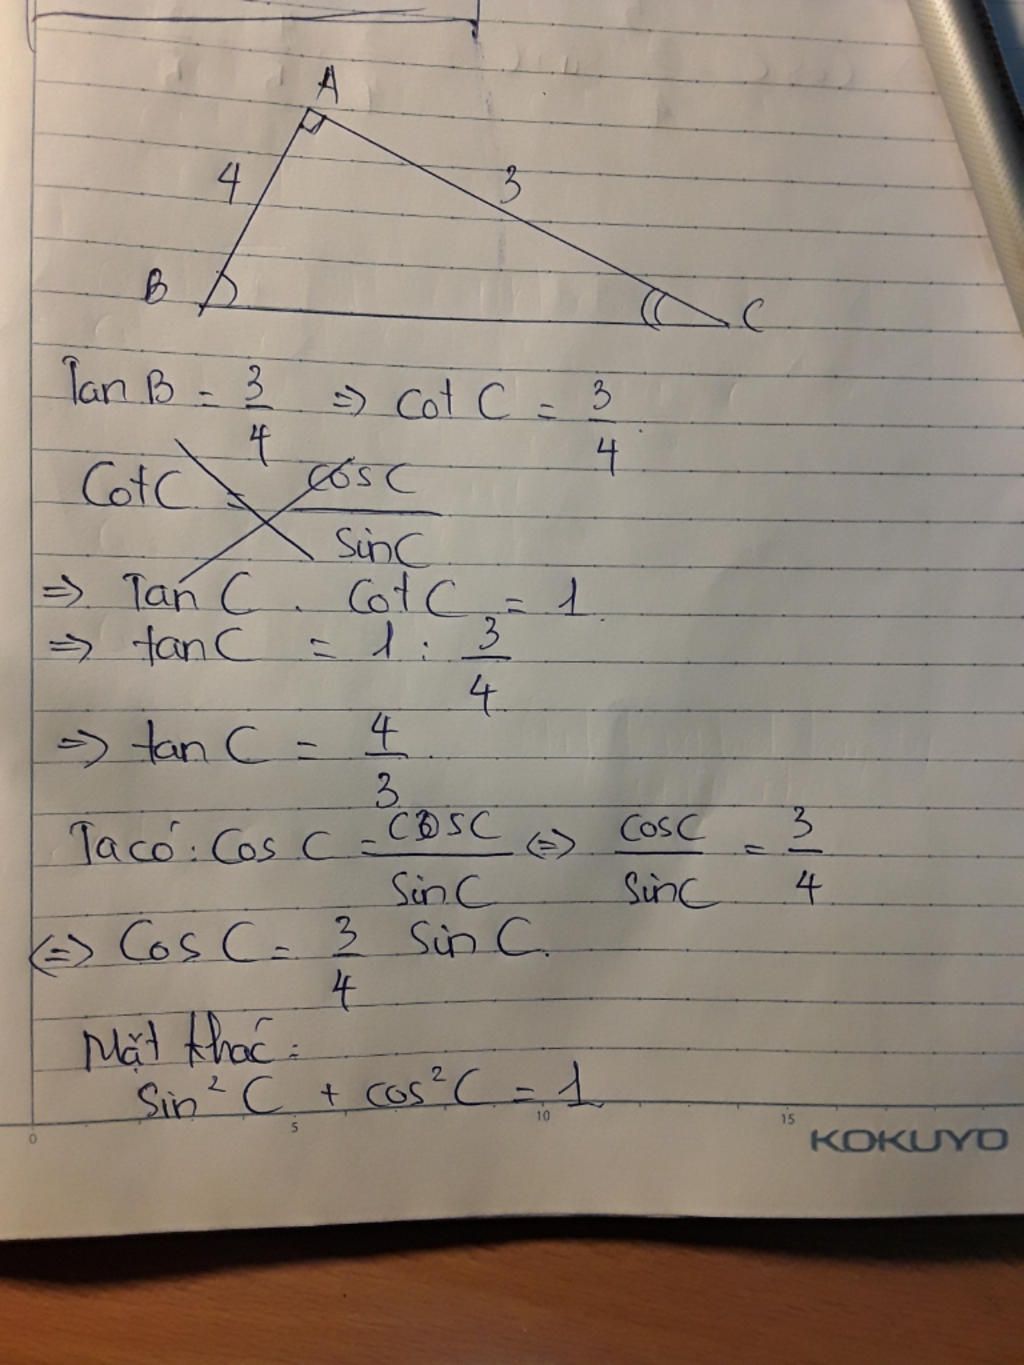 A
4
3
B
C
Tan B = 3/4 => cot C = 3/4.
Cot C = cos C / sin C
=> Tan C . Cot C = 1.
=> tan C = 1 : 3/4
=> tan C = 4/3.
Ta có: Cos C = cos C / sin C <=> cos C / sin C = 3/4
<=> Cos C = 3/4 sin C.
Mặt khác:
Sin² C + cos² C = 1
0 5 10 15
KOKUYO